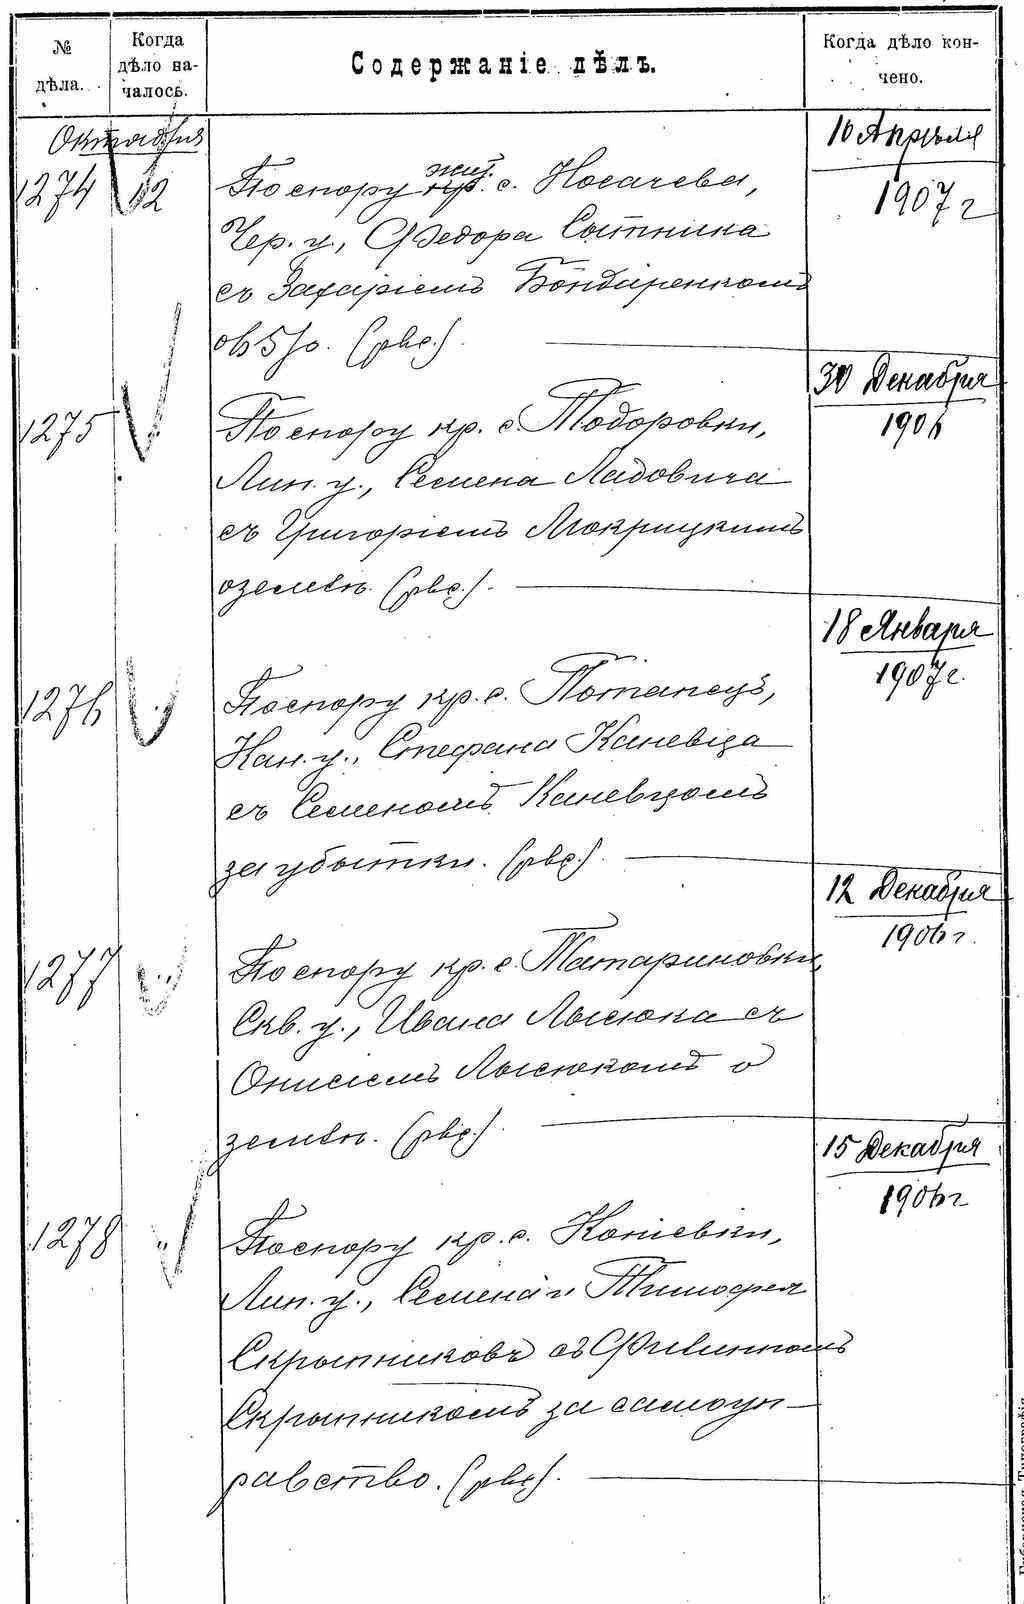 № дѣла.
Когда дѣло на-
чалось.
Содержаніе дѣлъ.
Когда дѣло кон-
чено.
Октября
1274
12
жит.
По спору кр. с. Носачева,
Чер. у., Ѳедора Сотника
съ Захаріемъ Бондаренкомъ
об 5/о. (рвс.).
10 Апрѣля
1907 г
1275
По спору кр. с. Тодоровки,
Лип. у., Семена Ладовича
съ Григоріемъ Мокрицкимъ
о землѣ. (рвс.).
30 Декабря
1906
1276
По спору кр. с. Потапецъ,
Кан. у., Стефана Каневца
съ Семеномъ Каневцомъ
за убытки. (рвс.).
18 Января
1907 г.
1277
По спору кр. с. Татариновки,
Скв. у., Ивана Лысюка съ
Онисіемъ Лысюкомъ о
землѣ. (рвс.).
12 Декабря
1906 г.
1278
По спору кр. с. Копіевки,
Лип. у., Семена и Тимофея
Скрыпниковъ съ
Скрыпникомъ за самоуп-
равство. (рвс.).
15 Декабря
1906 г